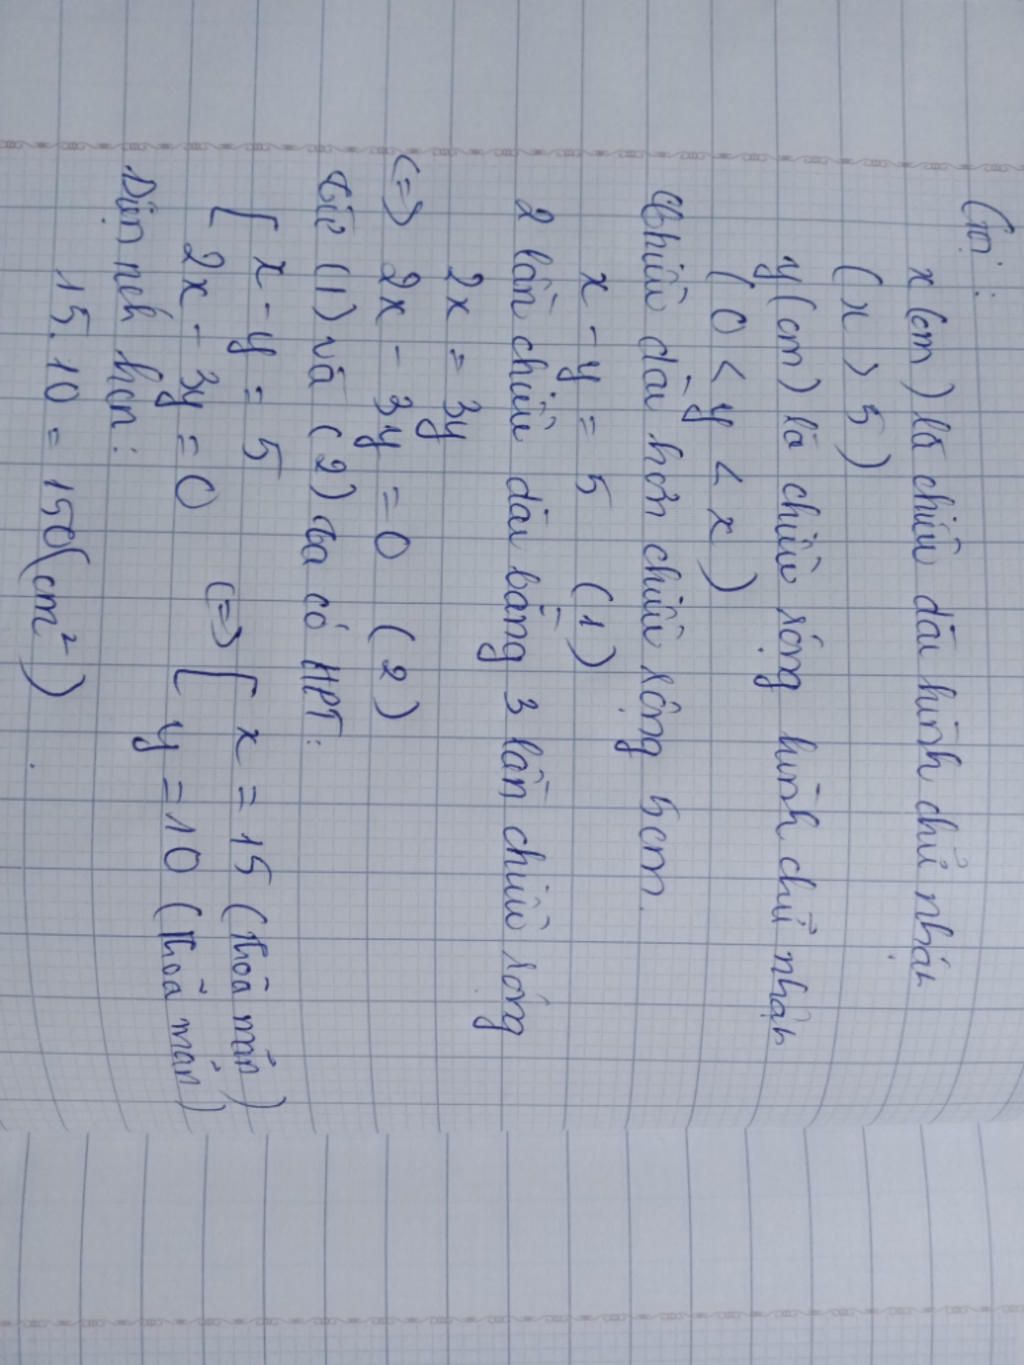 Gọi:
x (cm) là chiều dài hình chữ nhật
(x > 5)
y (cm) là chiều rộng hình chữ nhật
(0 < y < x)
Chiều dài hơn chiều rộng 5cm.
x - y = 5 (1)
2 lần chiều dài bằng 3 lần chiều rộng
2x = 3y
(=) 2x - 3y = 0 (2)
Từ (1) và (2) ta có HPT:
{ x - y = 5
2x - 3y = 0 (=) { x = 15 (thoả mãn)
y = 10 (thoả mãn)
Diện tích hcn:
15.10 = 150 (cm²).